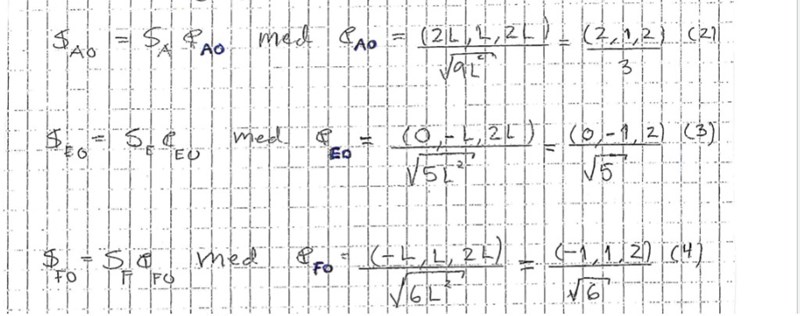 $_AO = S_A e_AO med e_AO = (2L, L, 2L) / √9L² = (2,1,2) / 3 (2)
$_EO = S_E e_EO med e_EO = (0, -L, 2L) / √5L² = (0,-1,2) / √5 (3)
$_FO = S_F e_FO med e_FO = (-L, L, 2L) / √6L² = (-1,1,2) / √6 (4)